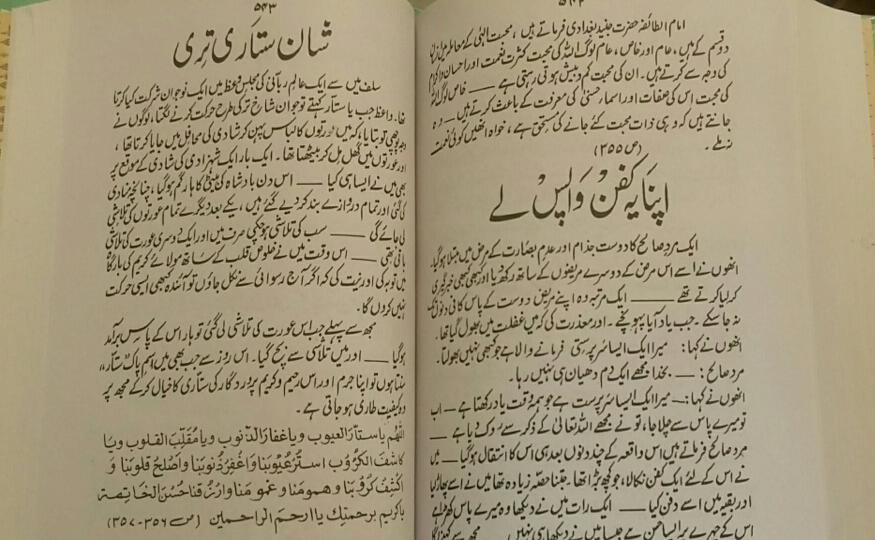 ۵۴۲
امام الطائفہ حضرت جنید بغدادی فرماتے ہیں، محبت الٰہی کے معاملہ میں
دو قسم کے ہیں، عام اور خاص، عام لوگ اللہ کی محبت کثرت نعمت اور احسان
کی وجہ سے کرتے ہیں۔ ان کی محبت کم و بیش ہوتی رہتی ہے ـــــ خاص لوگ
کی محبت اس کی صفات اور اسمار حسنیٰ کی معرفت کے باعث کرتے ہیں ـــــ وہ
جانتے ہیں کہ وہی ذات محبت کئے جانے کی مستحق ہے، خواہ انھیں کوئی نعمت
نہ ملے۔ (ص ۳۵۵)
اپنا یہ کفن واپس لے
ایک مرد صالح کا دوست جذام اور عدم بصارت کے مرض میں مبتلا ہوگیا۔
انھوں نے اسے اس مرض کے دوسرے مریضوں کے ساتھ رکھ دیا اور کبھی کبھی خبر گیری
کر لیا کرتے تھے ـــــ ایک مرتبہ وہ اپنے مریض دوست کے پاس کافی دنوں تک
نہ جا سکے۔ جب یاد آیا پہونچے۔ اور معذرت کی کہ میں غفلت میں بھول گیا تھا۔
انھوں نے کہا: میرا ایک ایسا سر پرستی فرمانے والا ہے جو کبھی نہیں بھولتا۔
مرد صالح: ـــــ بخدا مجھے ایک دم دھیان ہی نہیں رہا۔
انھوں نے کہا: ـــــ میرا ایک ایسا سرپرست ہے جو ہمہ وقت یاد رکھتا ہے ـــــ اب
تو میرے پاس سے چلا جا، تو نے مجھے اللہ تعالیٰ کے ذکر سے روک دیا ہے ـــــ
مرد صالح فرماتے ہیں اس واقعہ کے چند دنوں بعد ہی اس کا انتقال ہوگیا ـــــ میں
نے اس کے لئے ایک کفن نکالا، جو کچھ بڑا تھا۔ جتنا حصہ زیادہ تھا میں نے اسے پھاڑ لیا
اور بقیہ میں اسے دفن کیا ـــــ ایک رات میں نے دیکھا وہ میرے پاس کھڑا ہے
اس کے چہرے پر ایسا حسن ہے جیسا میں نے دیکھا ہی نہیں ـــــ مجھ سے
۵۴۳
شان ستاری تری
سلف میں سے ایک عالم ربانی کی مجلس وعظ میں ایک نوجوان شرکت کیا کرتا
تھا۔ واعظ جب یا ستار کہتے تو جوان شاخ تر کی طرح حرکت کرنے لگتا، لوگوں نے
وجہ پوچھی تو بتایا، کہ میں عورتوں کا لباس پہن کر شادی کی محافل میں جایا کرتا تھا،
اور عورتوں میں گھل مل کر بیٹھتا تھا۔ ایک بار ایک شہزادی کی شادی کے موقع پر
بھی میں نے ایسا ہی کیا ـــــ اس دن بادشاہ کی بیٹی کا ہار گم ہوگیا، چنانچہ منادی
کی گئی اور تمام دروازے بند کر دیے گئے ہیں، یکے بعد دیگرے تمام عورتوں کی تلاشی
لی جائے گی ـــــ سب کی تلاشی ہو چکی صرف میں اور ایک دوسری عورت کی تلاشی
باقی تھی ـــــ اس وقت میں نے خلوص قلب کے ساتھ مولائے کریم کی بارگاہ
میں توبہ کی اور نیت کی کہ اگر آج رسوائی سے نکل جاؤں تو آئندہ کبھی ایسی حرکت
نہیں کروں گا۔
مجھ سے پہلے جب اس عورت کی تلاشی لی گئی تو ہار اس کے پاس برآمد
ہوگیا ـــــ اور میں تلاشی سے بچ گیا۔ اس روز سے جب بھی میں اسم پاک "ستار"
سنتا ہوں تو اپنا جرم اور اس رحیم و کریم پروردگار کی ستاری کا خیال کر کے مجھ پر
وہ کیفیت طاری ہو جاتی ہے۔
اللهم يا ستار العيوب ويا غفار الذنوب ويا مقلب القلوب ويا
كاشف الكروب استر عيوبنا واغفر ذنوبنا واصلح قلوبنا و
اكشف كروبنا وهمومنا وغمومنا وارزقنا حسن الخاتمة
يا كريم برحمتك يا ارحم الراحمين (ص ۳۵۶-۳۵۷)